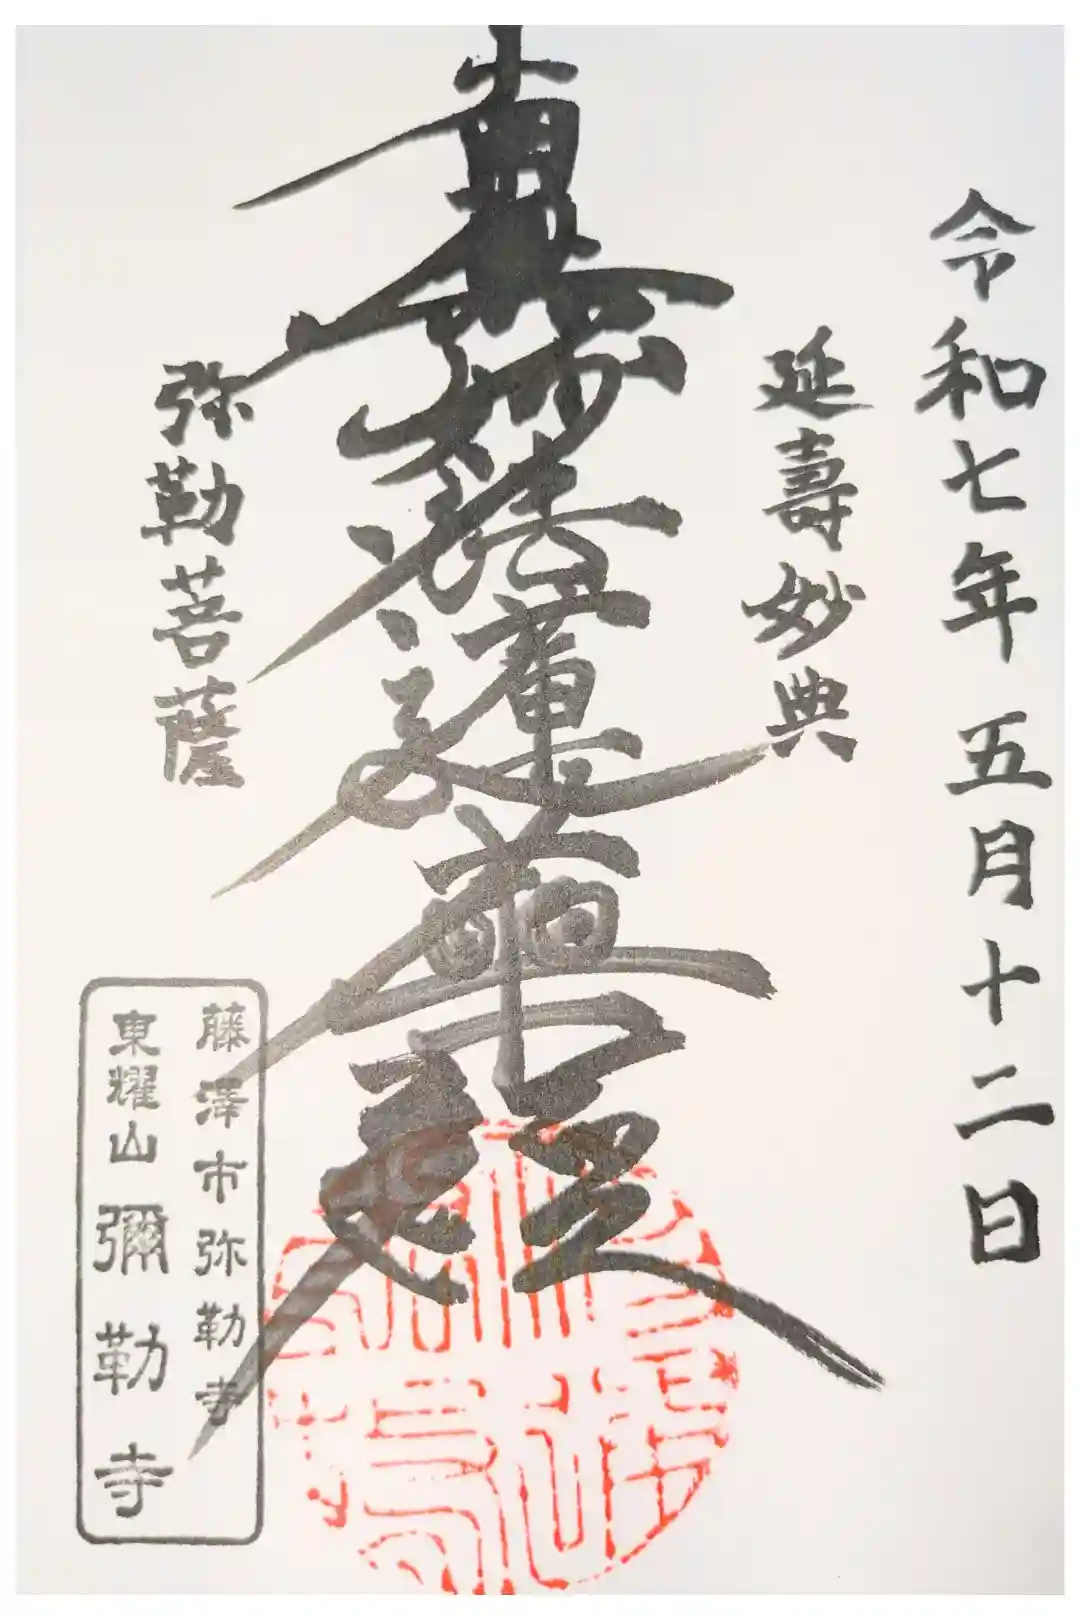 令和七年五月十二日
延壽妙典
南無妙法蓮華經
弥勒菩薩
藤澤市弥勒寺
東耀山彌勒寺